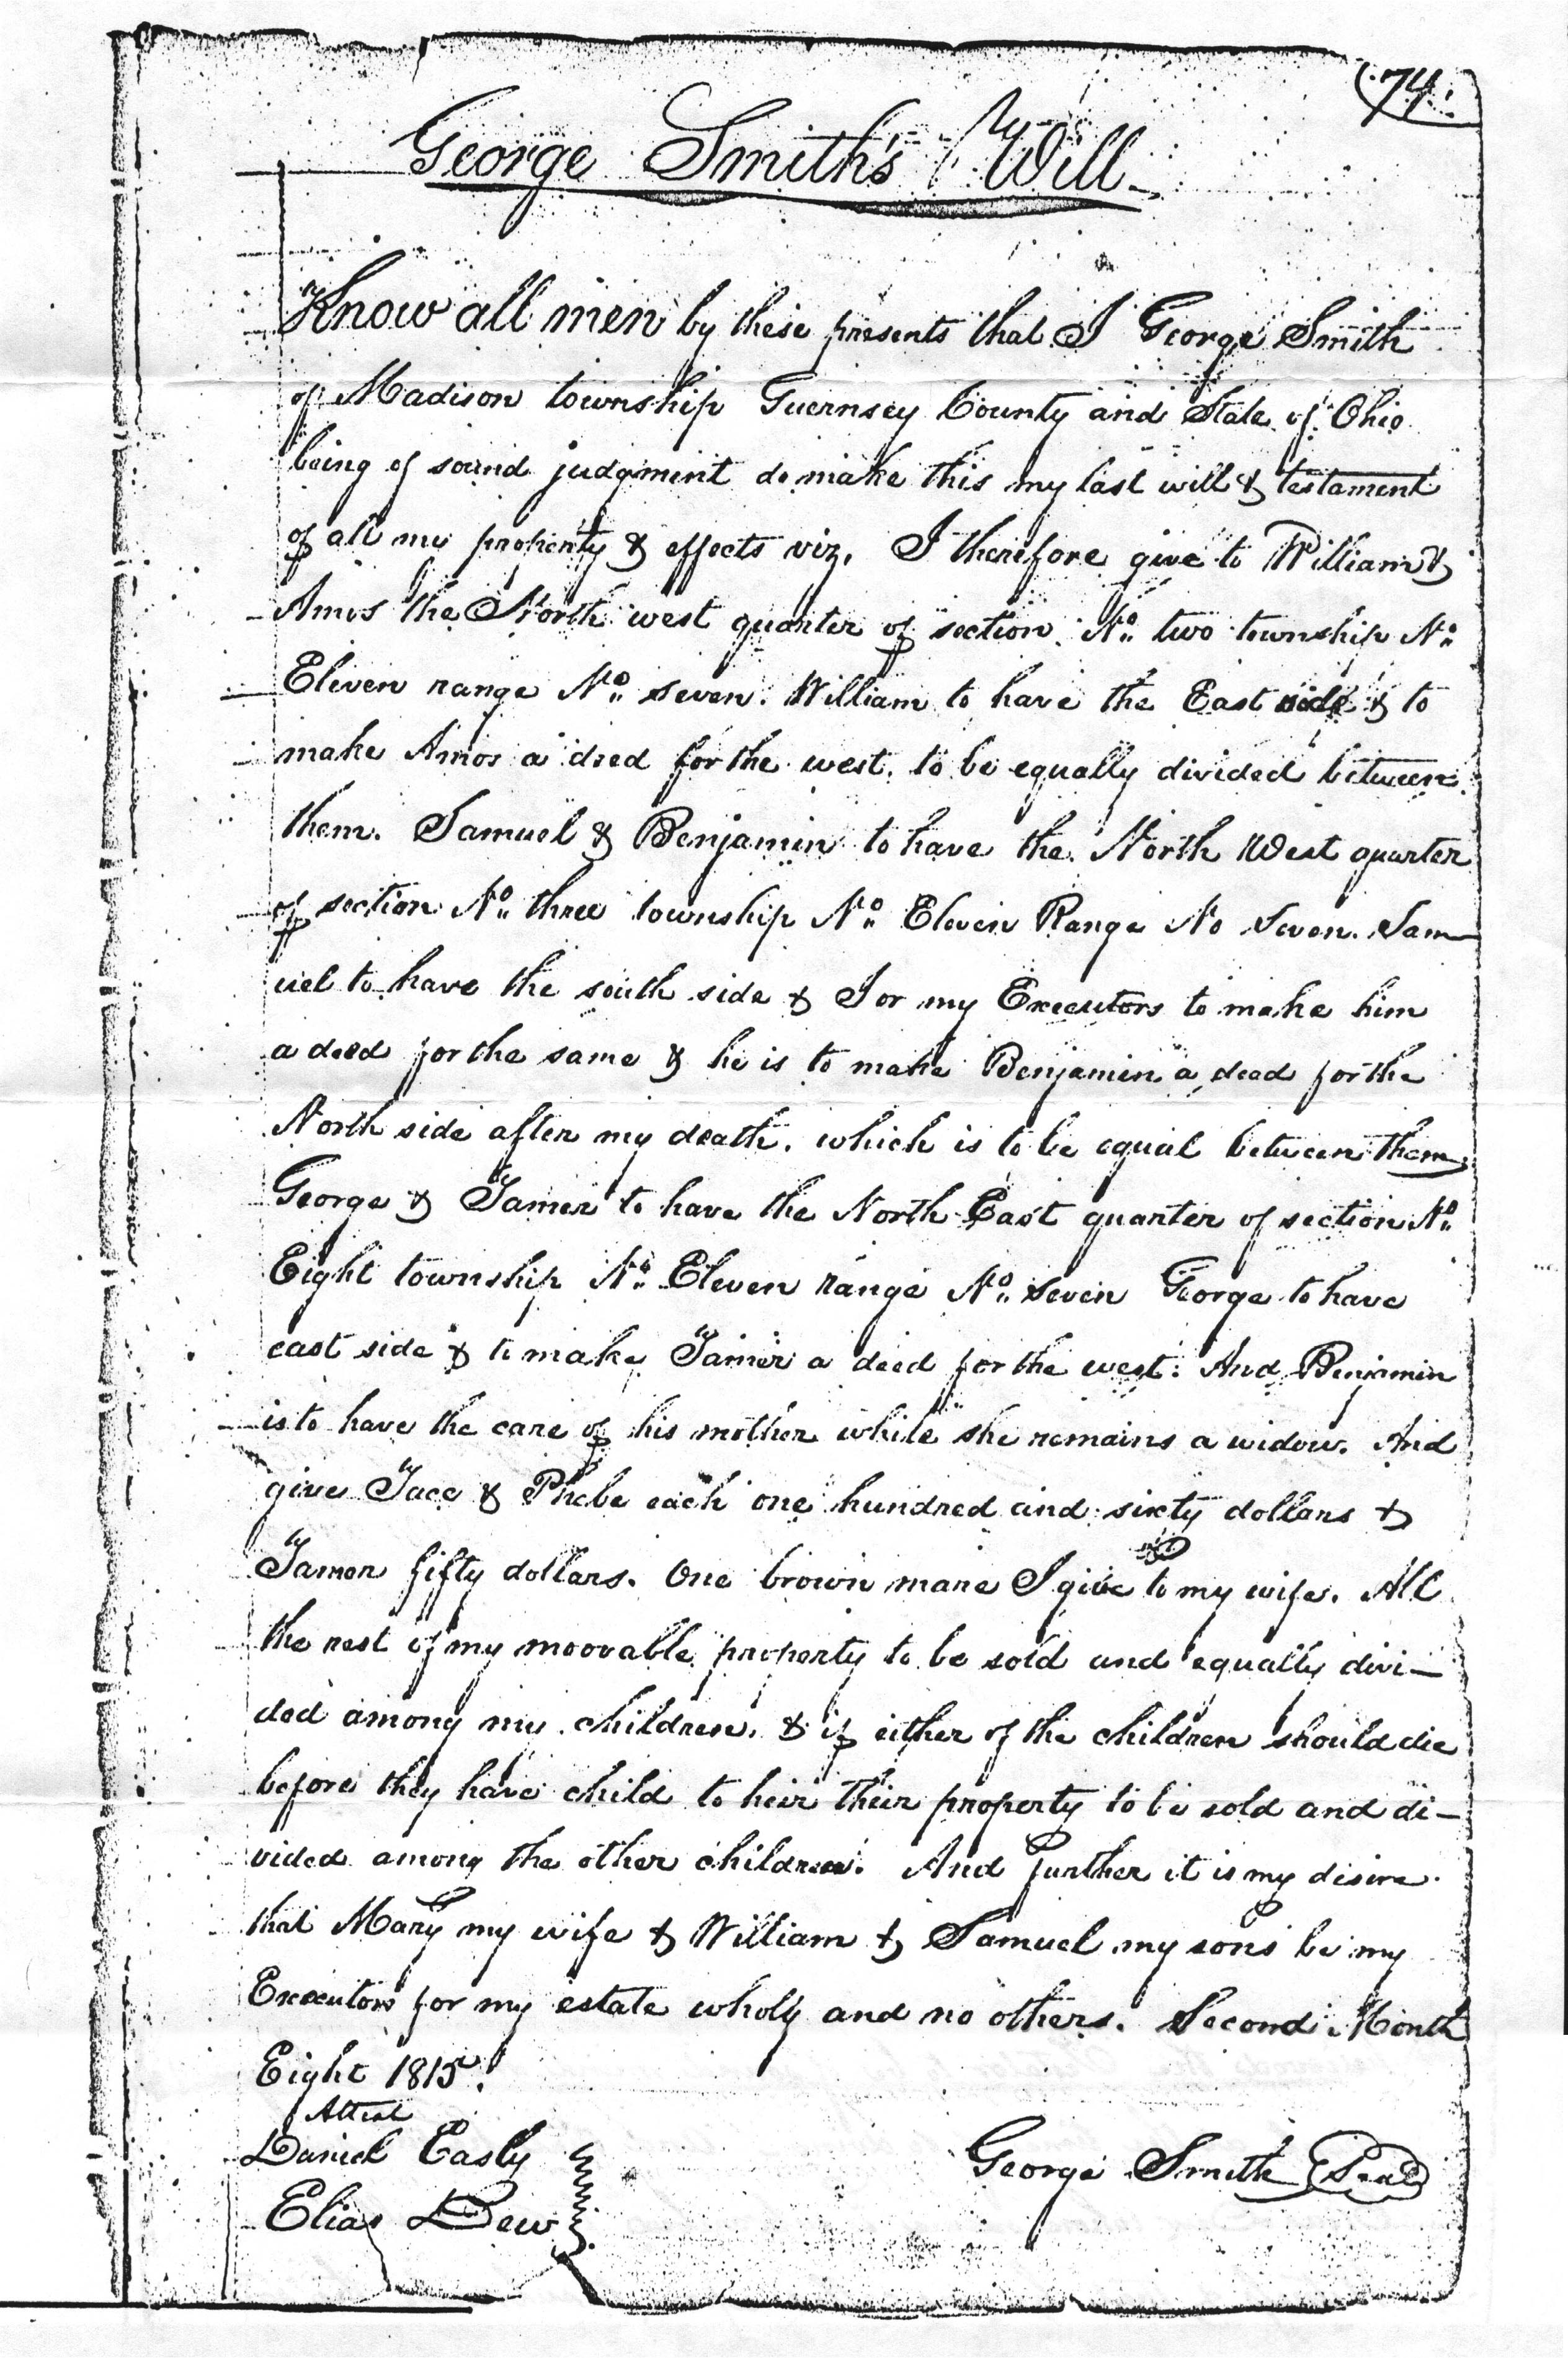 74.
George Smith's Will
Know all men by these presents that I George Smith
of Madison township Guernsey County and State of Ohio
being of sound judgment do make this my last will & testament
of all my property & effects viz. I therefore give to William &
Amos the North west quarter of section No two township No
Eleven range No seven. William to have the East side & to
make Amos a deed for the west. to be equally divided between
them. Samuel & Benjamin to have the North West quarter
of section No three township No Eleven Range No Seven. Sam-
uel to have the south side & I or my Executors to make him
a deed for the same & he is to make Benjamin a deed for the
North side after my death. which is to be equal between them
George & Tamer to have the North East quarter of section No
Eight township No Eleven range No seven George to have
east side & to make Tamer a deed for the west. And Benjamin
is to have the care of his mother while she remains a widow. And
give Tace & Phebe each one hundred and sixty dollars &
Tamer fifty dollars. One brown mare I give to my wife. All
the rest of my moovable property to be sold and equally divi-
ded among my children. & if either of the children should die
before they have child to heir their property to be sold and di-
vided among the other children. And further it is my disire
that Mary my wife & William & Samuel my sons be my
Executors for my estate wholy and no others. Second Month
Eight 1815.
Attest
Daniel Easly
George Smith Seal
Elias Dew